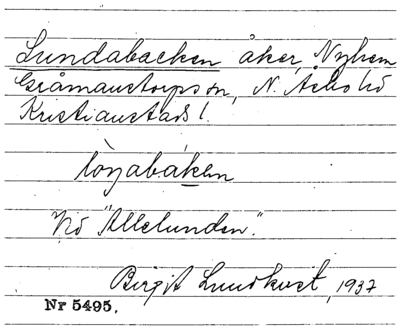 Lundabacken åker, Nyhem
Gråmanstorps sn, N. Åsbo hd
Kristianstads l.
loŋabákεn
Vid "Allelunden".
Birgit Lundkvist, 1937
Nr 5495.